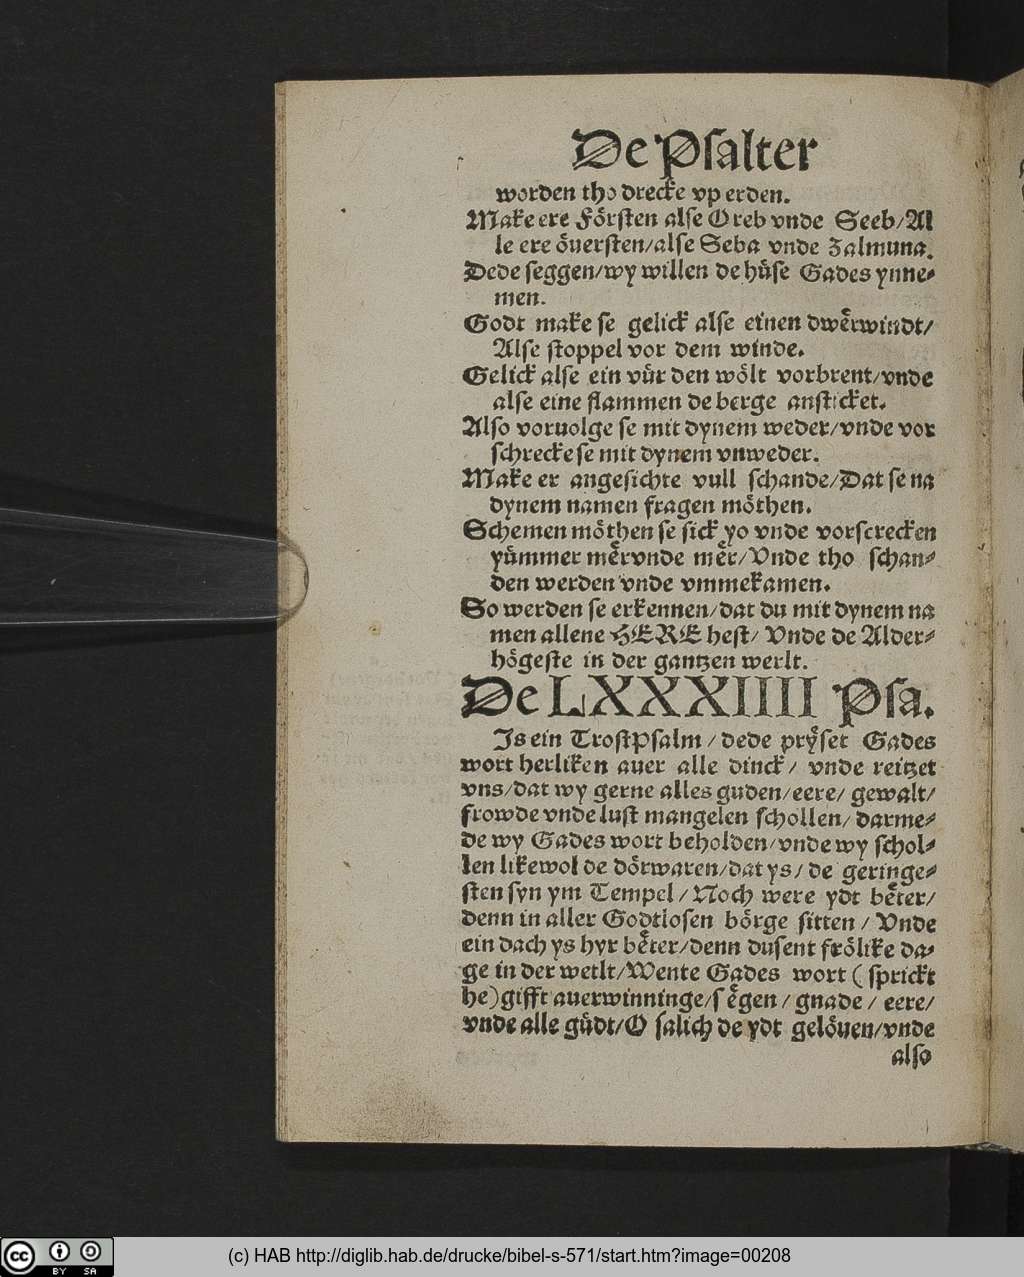 De Psalter
worden tho drecke vp erden.
Make ere Foͤrsten alse Oreb vnde Seeb/Al
le ere oͤuersten/alse Seba vnde Zalmuna.
Dede seggen/wy willen de huͤse Gades ynne⸗
men.
Godt make se gelick alse einen dweͤrwindt/
Alse stoppel vor dem winde.
Gelick alse ein vuͤr den woͤlt vorbrent/vnde
alse eine flammen de berge ansticket.
Also voruolge se mit dynem weder/vnde vor
schrecke se mit dynem vnweder.
Make er angesichte vull schande/Dat se na
dynem namen fragen moͤthen.
Schemen moͤthen se sick yo vnde vorscrecken
yuͤmmer meͤrvnde meͤr/Vnde tho schan⸗
den werden vnde vmmekamen.
So werden se erkennen/dat du mit dynem na
men allene HERE hest/ Vnde de Alder⸗
hoͤgeste in der gantzen werlt.
De LXXXIIII Psa.
Js ein TrostPsalm/dede pryͤset Gades
wort herliken auer alle dinck/ vnde reitzet
vns/dat wy gerne alles guden/eere/ gewalt/
frowde vnde lust mangelen schollen/ darme⸗
de wy Gades wort beholden/vnde wy schol⸗
len likewol de doͤrwaren/dat ys/ de geringe⸗
sten syn ym Tempel/Noch were ydt beͤter/
denn in aller Godtlosen boͤrge sitten/ Vnde
ein dach ys hyr beͤter/denn dusent froͤlike da⸗
ge in der wetlt/Wente Gades wort (sprickt
he)gifft auerwinninge/s eͤgen/ gnade/ eere/
vnde alle guͤdt/O salich de ydt geloͤuen/vnde
also
(c) HAB http://diglib.hab.de/drucke/bibel-s-571/start.htm?image=00208
cc BY SA